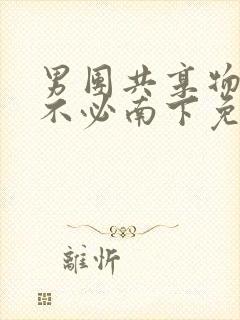 男团共享物
不必南下免
離忻